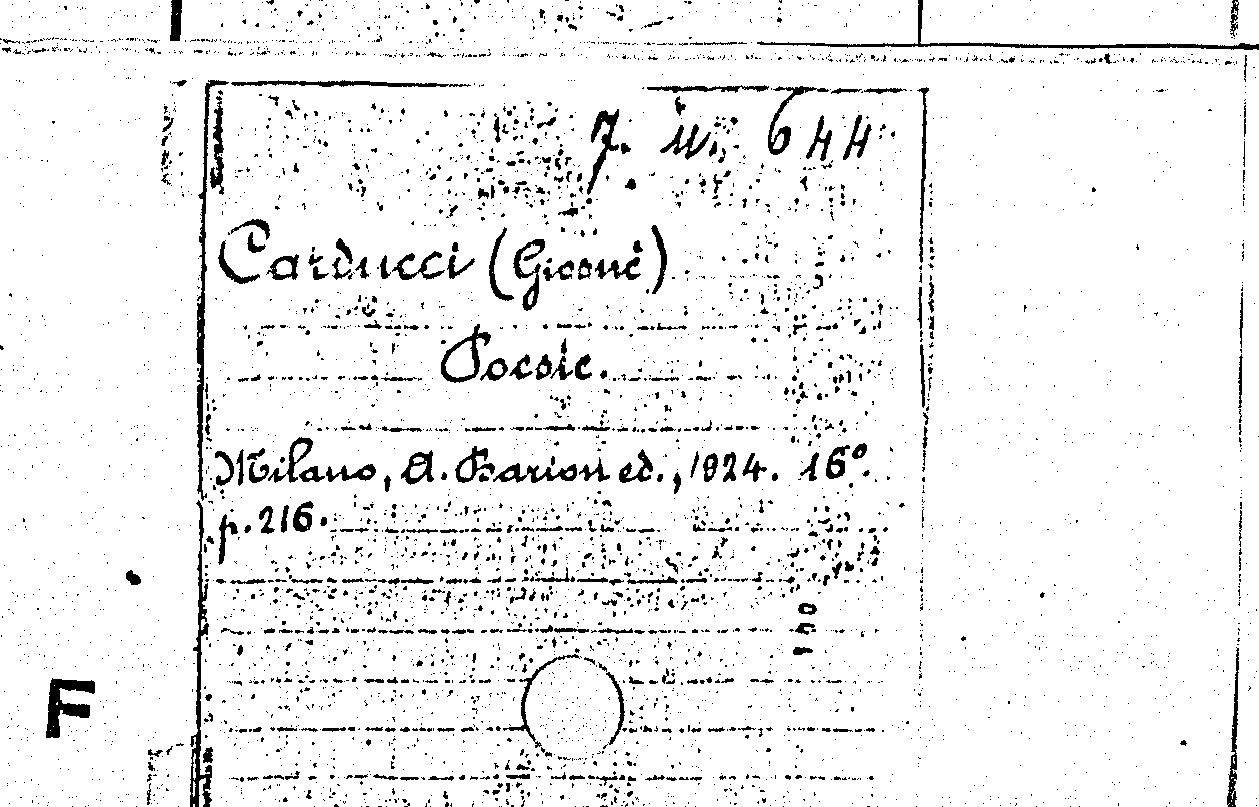 7. in. 644
Carducci (Giosuè)
Poesie.
Milano, A. Barion ed., 1924. 16º.
p. 216.
F